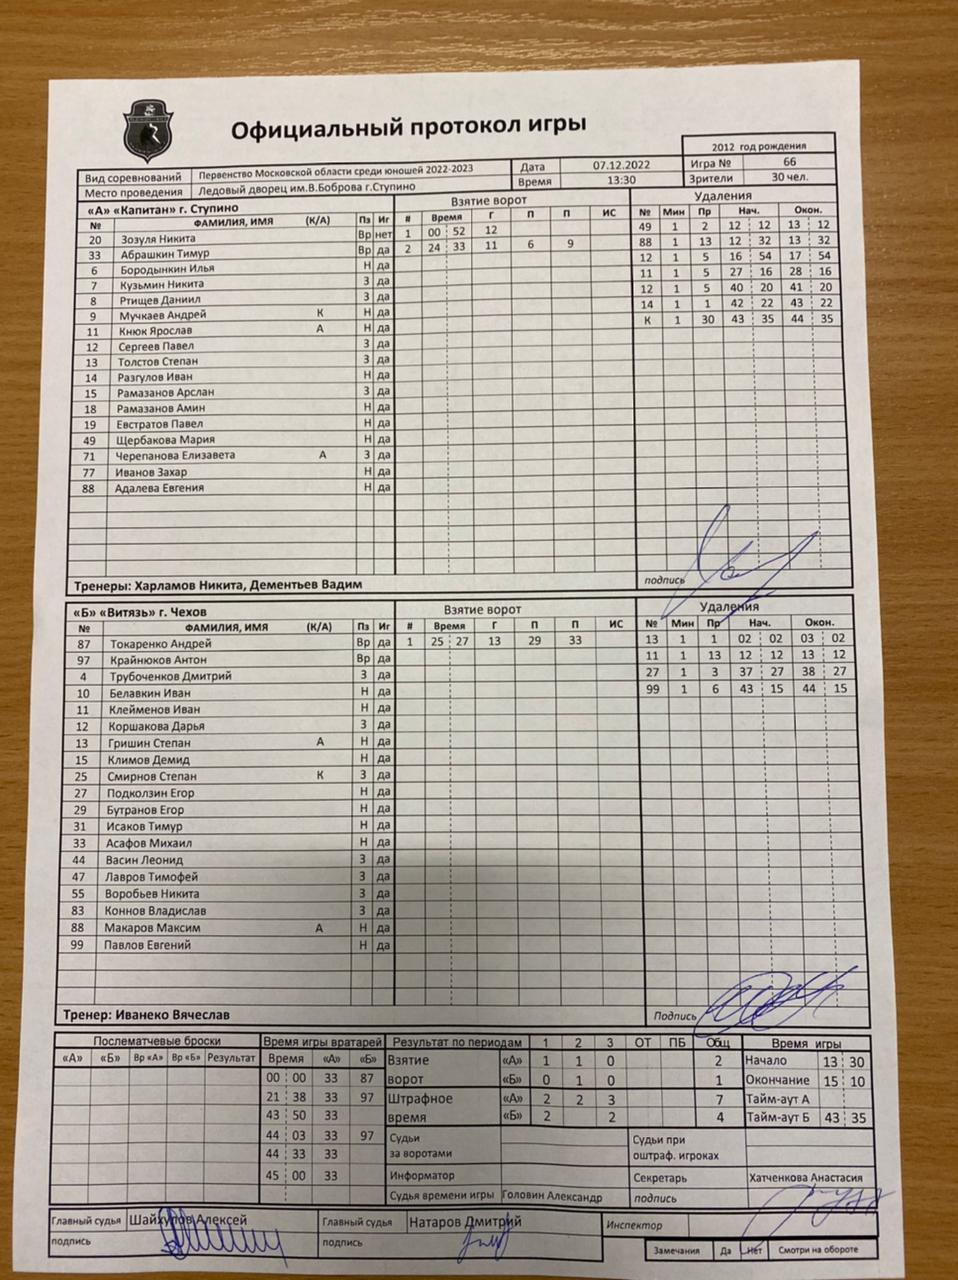 Официальный протокол игры
2012 год рождения
Вид соревнований Первенство Московской области среди юношей 2022-2023 Дата 07.12.2022 Игра № 66
Место проведения Ледовый дворец им.В.Боброва г.Ступино Время 13:30 Зрители 30 чел.
«А» «Капитан» г. Ступино Взятие ворот Удаления
№ ФАМИЛИЯ, ИМЯ (К/А) Пз Иг # Время Г П П ИС № Мин Пр Нач. Окон.
20 Зозуля Никита Вр нет 1 00 52 12 49 1 2 12 12 13 12
33 Абрашкин Тимур Вр да 2 24 33 11 6 9 88 1 13 12 32 13 32
6 Бородынкин Илья Н да 12 1 5 16 54 17 54
7 Кузьмин Никита З да 11 1 5 27 16 28 16
8 Ртищев Даниил З да 12 1 5 40 20 41 20
9 Мучкаев Андрей К Н да 14 1 1 42 22 43 22
11 Кнюк Ярослав А Н да К 1 30 43 35 44 35
12 Сергеев Павел З да
13 Толстов Степан З да
14 Разгулов Иван Н да
15 Рамазанов Арслан З да
18 Рамазанов Амин Н да
19 Евстратов Павел Н да
49 Щербакова Мария Н да
71 Черепанова Елизавета А З да
77 Иванов Захар Н да
88 Адалева Евгения Н да
Тренеры: Харламов Никита, Дементьев Вадим подпись
«Б» «Витязь» г. Чехов Взятие ворот Удаления
№ ФАМИЛИЯ, ИМЯ (К/А) Пз Иг # Время Г П П ИС № Мин Пр Нач. Окон.
87 Токаренко Андрей Вр да 1 25 27 13 29 33 13 1 1 02 02 03 02
97 Крайнюков Антон Вр да 11 1 13 12 12 13 12
4 Трубоченков Дмитрий З да 27 1 3 37 27 38 27
10 Белавкин Иван Н да 99 1 6 43 15 44 15
11 Клейменов Иван Н да
12 Коршакова Дарья З да
13 Гришин Степан А Н да
15 Климов Демид Н да
25 Смирнов Степан К З да
27 Подколзин Егор Н да
29 Бутранов Егор Н да
31 Исаков Тимур Н да
33 Асафов Михаил Н да
44 Васин Леонид З да
47 Лавров Тимофей З да
55 Воробьев Никита З да
83 Коннов Владислав З да
88 Макаров Максим А Н да
99 Павлов Евгений Н да
Тренер: Иванеко Вячеслав Подпись
Послематчевые броски Время игры вратарей Результат по периодам 1 2 3 ОТ ПБ Общ Время игры
«А» «Б» Вр «А» Вр «Б» Результат Время «А» «Б» Взятие «А» 1 1 0 2 Начало 13 30
00 00 33 87 ворот «Б» 0 1 0 1 Окончание 15 10
21 38 33 97 Штрафное «А» 2 2 3 7 Тайм-аут А
43 50 33 время «Б» 2 2 4 Тайм-аут Б 43 35
44 03 33 97 Судьи Судьи при
44 33 33 за воротами оштраф. игроках
45 00 33 Информатор Секретарь Хатченкова Анастасия
Судья времени игры Головин Александр подпись
Главный судья Шайхулов Алексей Главный судья Натаров Дмитрий Инспектор
подпись подпись Замечания Да Нет Смотри на обороте